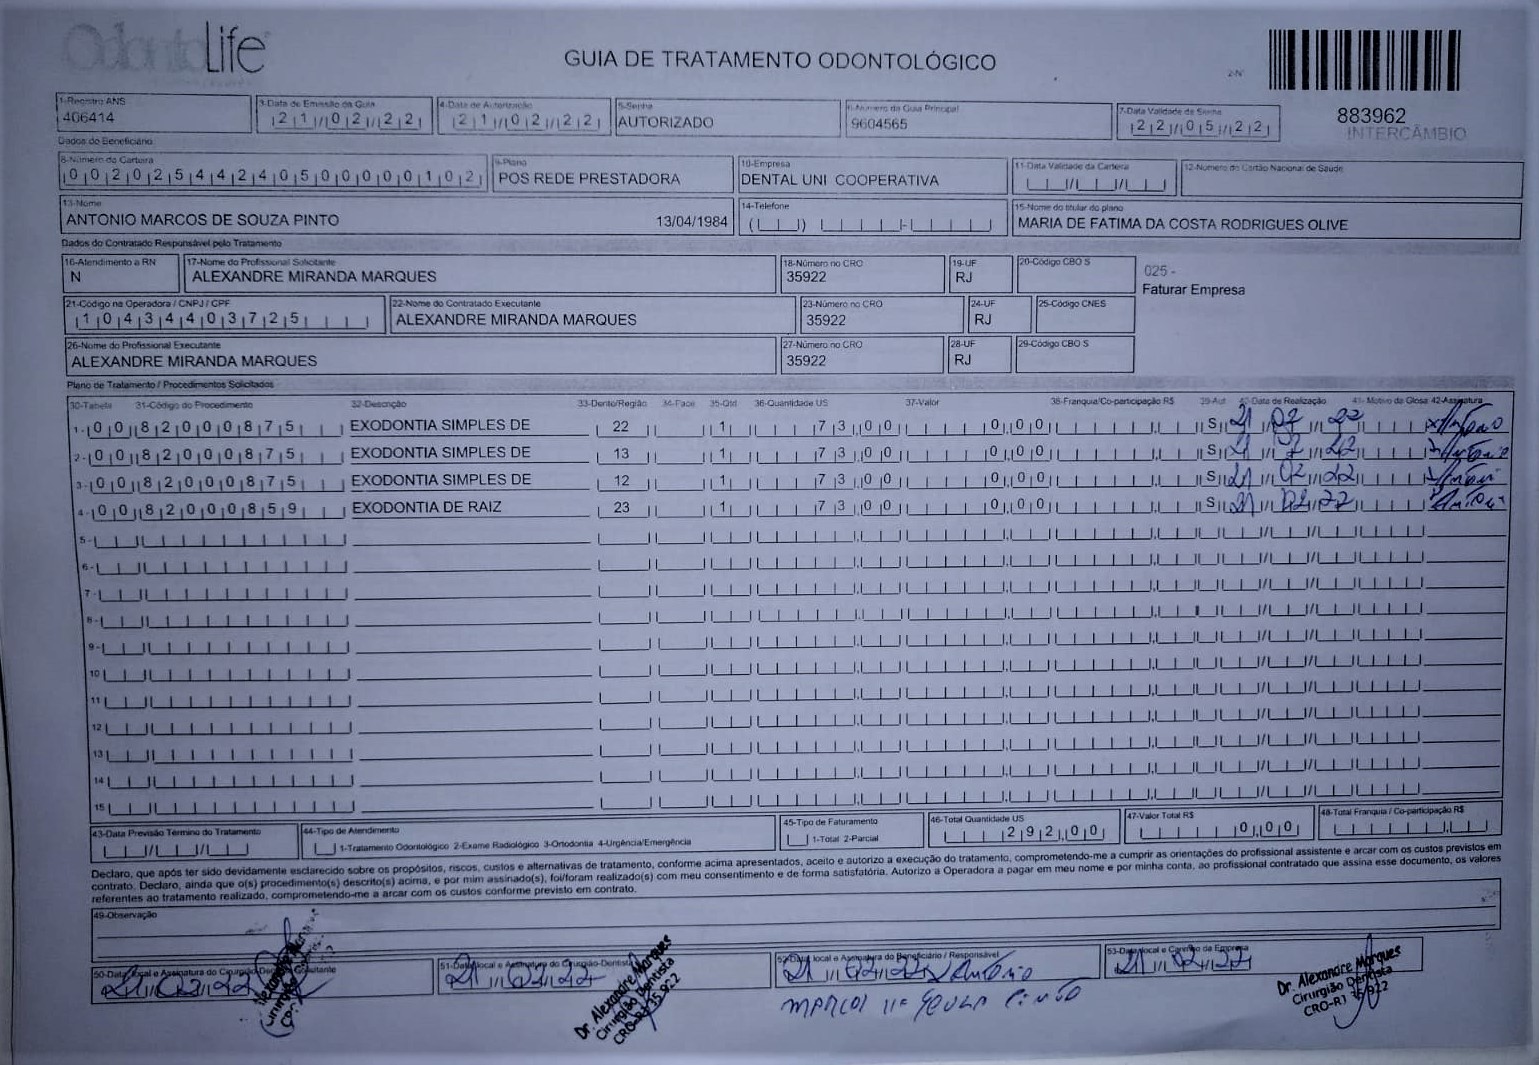 OdontoLife
GUIA DE TRATAMENTO ODONTOLÓGICO
2-Nº
883962
INTERCÂMBIO
1-Registro ANS
406414
3-Data de Emissão da Guia
21/02/22
4-Data de Autorização
21/02/22
5-Senha
AUTORIZADO
6-Número da Guia Principal
9604565
7-Data Validade da Senha
22/05/22
Dados do Beneficiário
8-Número da Carteira
00202544240500000102
9-Plano
POS REDE PRESTADORA
10-Empresa
DENTAL UNI COOPERATIVA
11-Data Validade da Carteira
12-Número do Cartão Nacional de Saúde
13-Nome
ANTONIO MARCOS DE SOUZA PINTO 13/04/1984
14-Telefone
15-Nome do titular do plano
MARIA DE FATIMA DA COSTA RODRIGUES OLIVE
Dados do Contratado Responsável pelo Tratamento
16-Atendimento a RN
N
17-Nome do Profissional Solicitante
ALEXANDRE MIRANDA MARQUES
18-Número no CRO
35922
19-UF
RJ
20-Código CBO S
025 -
Faturar Empresa
21-Código na Operadora / CNPJ / CPF
10434403725
22-Nome do Contratado Executante
ALEXANDRE MIRANDA MARQUES
23-Número no CRO
35922
24-UF
RJ
25-Código CNES
26-Nome do Profissional Executante
ALEXANDRE MIRANDA MARQUES
27-Número no CRO
35922
28-UF
RJ
29-Código CBO S
Plano de Tratamento / Procedimentos Solicitados
30-Tabela 31-Código do Procedimento 32-Descrição 33-Dente/Região 34-Face 35-Qtd 36-Quantidade US 37-Valor 38-Franquia/Co-participação R$ 39-Aut 40-Data de Realização 41-Motivo da Glosa 42-Assinatura
1- 00 82000875 EXODONTIA SIMPLES DE 22 1 73,00 0,00 S 21 02 22 Antonio
2- 00 82000875 EXODONTIA SIMPLES DE 13 1 73,00 0,00 S 21 02 22 Antonio
3- 00 82000875 EXODONTIA SIMPLES DE 12 1 73,00 0,00 S 21 02 22 Antonio
4- 00 82000859 EXODONTIA DE RAIZ 23 1 73,00 0,00 S 21 02 22 Antonio
5-
6-
7-
8-
9-
10
11
12
13
14
15
43-Data Previsão Término do Tratamento
44-Tipo de Atendimento
1-Tratamento Odontológico 2-Exame Radiológico 3-Ortodontia 4-Urgência/Emergência
45-Tipo de Faturamento
1-Total 2-Parcial
46-Total Quantidade US
292,00
47-Valor Total R$
0,00
48-Total Franquia / Co-participação R$
Declaro, que após ter sido devidamente esclarecido sobre os propósitos, riscos, custos e alternativas de tratamento, conforme acima apresentados, aceito e autorizo a execução do tratamento, comprometendo-me a cumprir as orientações do profissional assistente e arcar com os custos previstos em
contrato. Declaro, ainda que o(s) procedimento(s) descrito(s) acima, e por mim assinado(s), foi/foram realizado(s) com meu consentimento e de forma satisfatória. Autorizo a Operadora a pagar em meu nome e por minha conta, ao profissional contratado que assina esse documento, os valores
referentes ao tratamento realizado, comprometendo-me a arcar com os custos conforme previsto em contrato.
49-Observação
50-Data, local e Assinatura do Cirurgião-Dentista Solicitante
21/02/22
51-Data, local e Assinatura do Cirurgião-Dentista
21/02/22
Dr. Alexandre Marques
Cirurgião Dentista
CRO-RJ 35.922
52-Data, local e Assinatura do Beneficiário / Responsável
21/02/22 Antonio
53-Data, local e Carimbo da Empresa
21/02/22
Dr. Alexandre Marques
Cirurgião Dentista
CRO-RJ 35.922